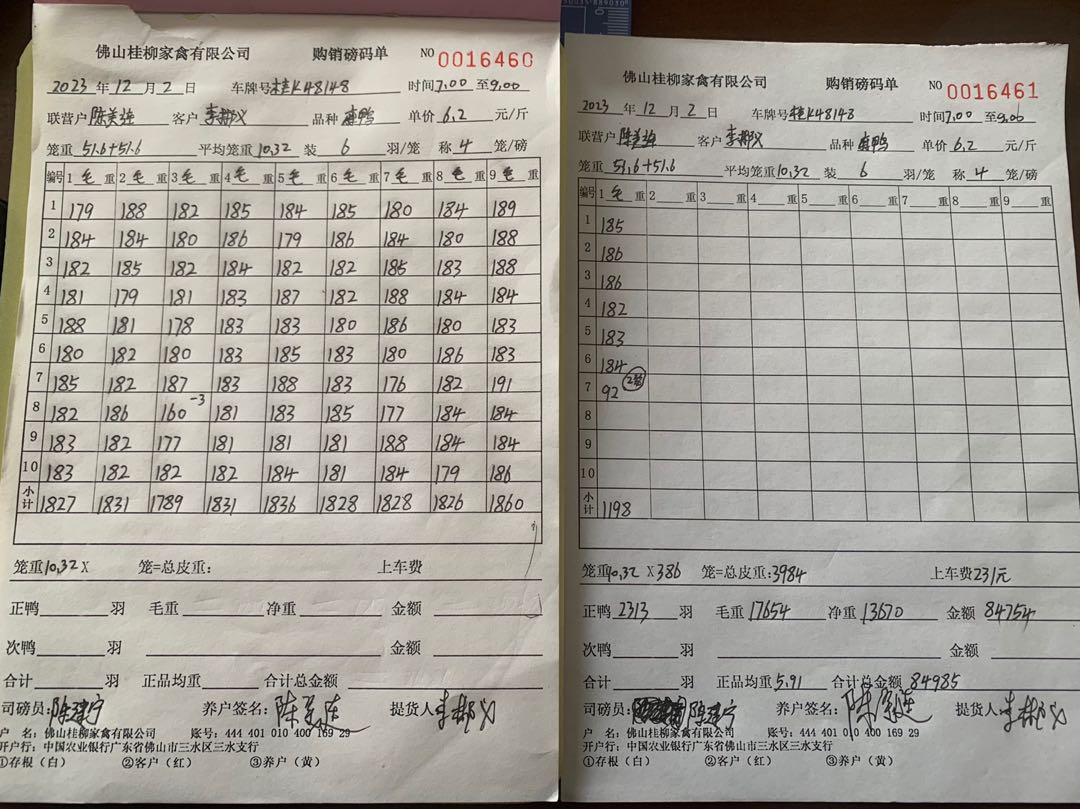 佛山桂柳家禽有限公司 购销磅码单 NO 0016460
2023 年 12 月 2 日 车牌号桂K48148 时间7.00 至9.00
联营户 陈美连 客户 李郴义 品种 麻鸭 单价 6.2 元/斤
笼重 51.6+51.6 平均笼重10.32 装 6 羽/笼 称 4 笼/磅
编号 1 毛 重 2 毛 重 3 毛 重 4 毛 重 5 毛 重 6 毛 重 7 毛 重 8 毛 重 9 毛 重
1 179 188 182 185 184 185 180 184 189
2 184 184 180 186 179 186 184 180 188
3 182 185 182 184 182 182 185 183 188
4 181 179 181 183 187 182 188 184 184
5 188 181 178 183 183 180 186 180 183
6 180 182 180 183 185 183 180 186 183
7 185 182 187 183 188 183 176 182 191
8 182 186 160 -3 181 183 185 177 184 184
9 183 182 177 181 181 181 188 184 184
10 183 182 182 182 184 181 184 179 186
小计 1827 1831 1789 1831 1836 1828 1828 1826 1860
笼重10.32 X 笼=总皮重: 上车费
正鸭 羽 毛重 净重 金额
次鸭 羽 金额
合计 羽 正品均重 合计总金额
司磅员: 养户签名: 提货人: 李郴义
户 名: 佛山桂柳家禽有限公司 账号: 444 401 010 400 169 29
开户行: 中国农业银行广东省佛山市三水区三水支行
①存根(白) ②客户(红) ③养户(黄)
佛山桂柳家禽有限公司 购销磅码单 NO 0016461
2023 年 12 月 2 日 车牌号桂K48148 时间7.00 至9.00
联营户 陈美连 客户 李郴义 品种 麻鸭 单价 6.2 元/斤
笼重 51.6+51.6 平均笼重10.32 装 6 羽/笼 称 4 笼/磅
编号 1 毛 重 2 重 3 重 4 重 5 重 6 重 7 重 8 重 9 重
1 185
2 186
3 186
4 182
5 183
6 184
7 92
8
9
10
小计 1198
笼重10.32 X 386 笼=总皮重:3984 上车费231元
正鸭 2313 羽 毛重 17654 净重 13670 金额 84754
次鸭 羽 金额
合计 羽 正品均重 5.91 合计总金额 84985
司磅员: 养户签名: 提货人: 李郴义
户 名: 佛山桂柳家禽有限公司 账号: 444 401 010 400 169 29
开户行: 中国农业银行广东省佛山市三水区三水支行
①存根(白) ②客户(红) ③养户(黄)